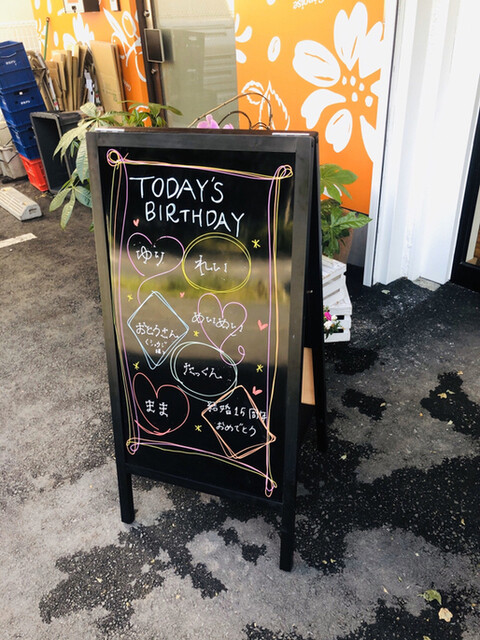 TODAY'S
BIRTHDAY
ゆり
れい
おとうさん
めいめい
たっくん
まま
結婚15周年
おめでとう